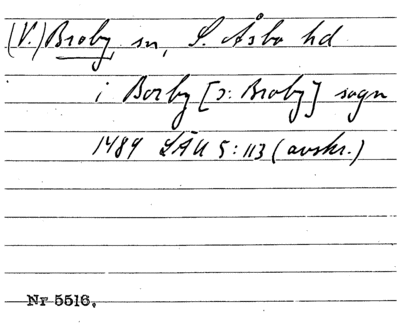 (V.) Broby sn, S. Åsbo hd
i Borby [ɔ: Broby] sogn
1489 LÄU 5:113 (avskr.)
Nr 5516.